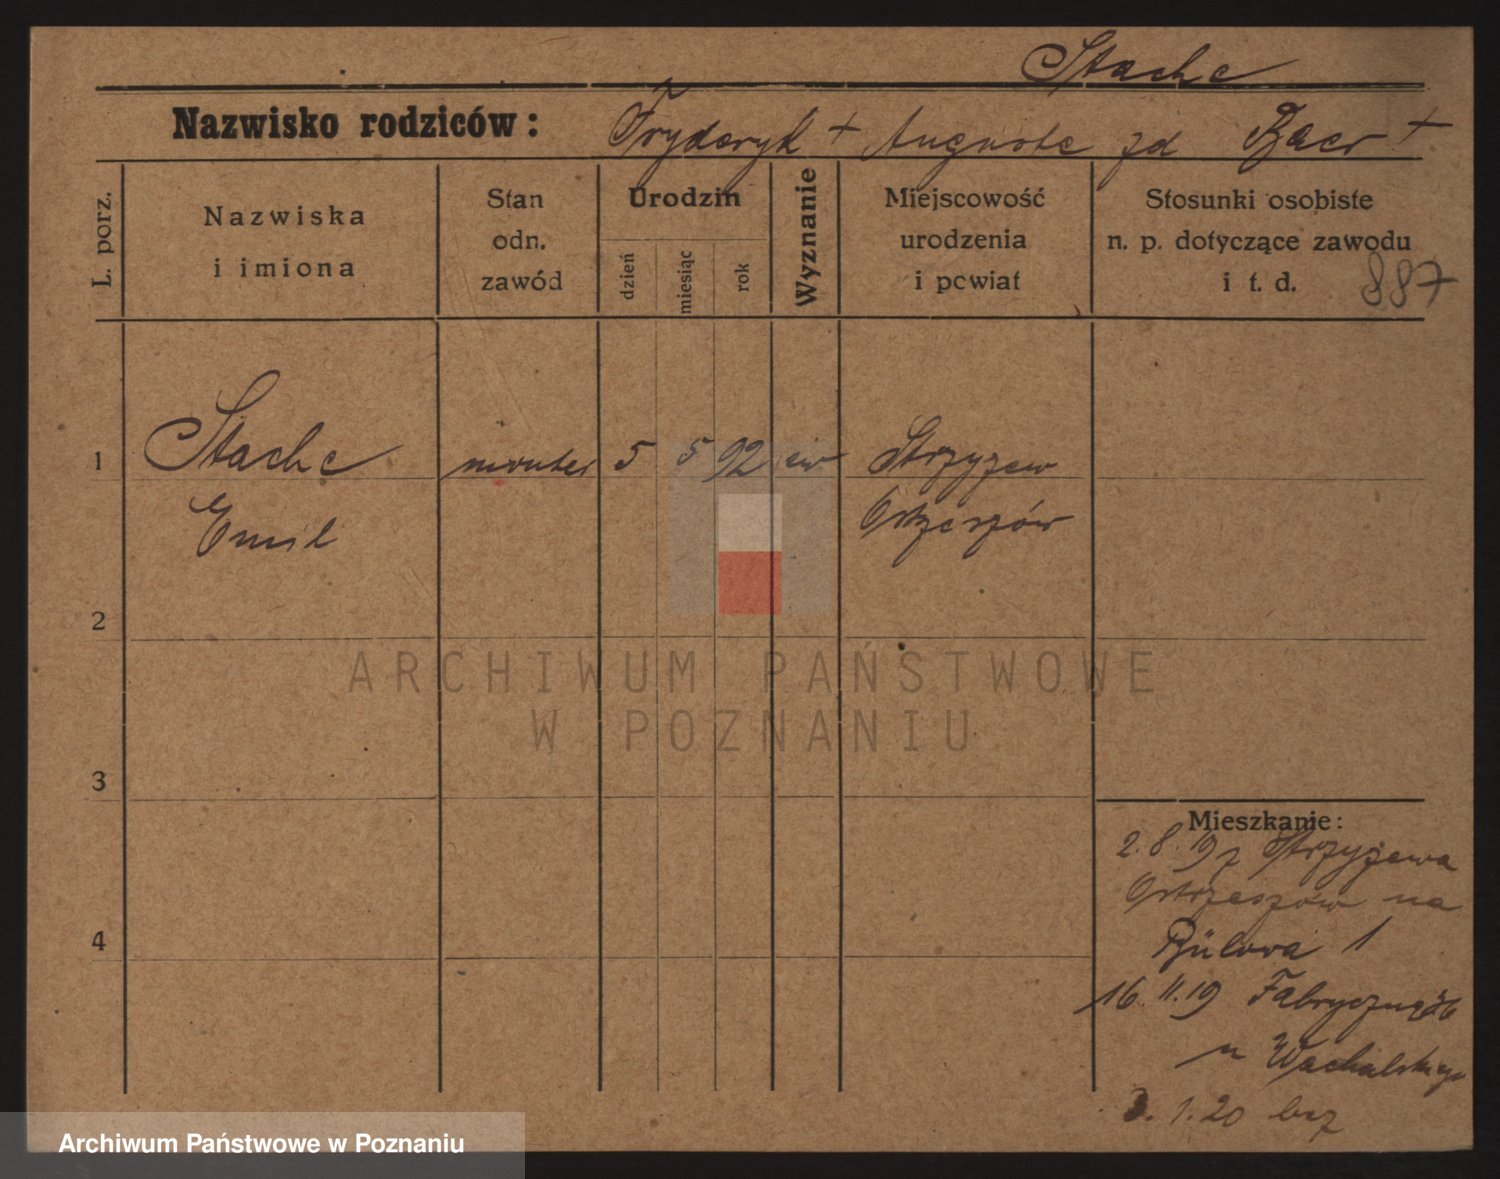 Stache
Nazwisko rodziców: Fryderyk + Auguste zd Baer +
L. porz.
Nazwiska
i imiona
Stan
odn.
zawód
Urodzin
dzień
miesiąc
rok
Wyznanie
Miejscowość
urodzenia
i powiat
Stosunki osobiste
n. p. dotyczące zawodu
i t. d.
887
1 Stache monter 5 5 92 ew Strzyżew
Emil Ostrzeszów
2
3
4
Mieszkanie:
2.8.19 z Strzyżewa
Ostrzeszów na
Bülowa 1
16.11.19 Fabryczną
u Wachalskiego
3.1.20 bez
ARCHIWUM PAŃSTWOWE
W POZNANIU
Archiwum Państwowe w Poznaniu